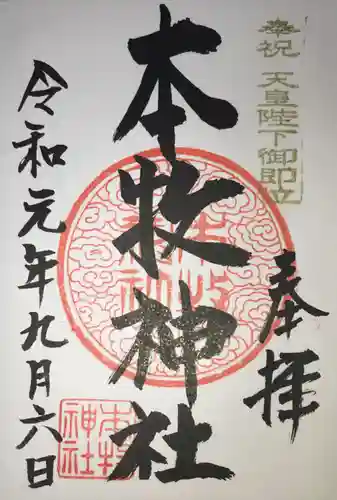 奉祝 天皇陛下御即立
奉拝
本牧神社
令和元年九月六日
本牧神社